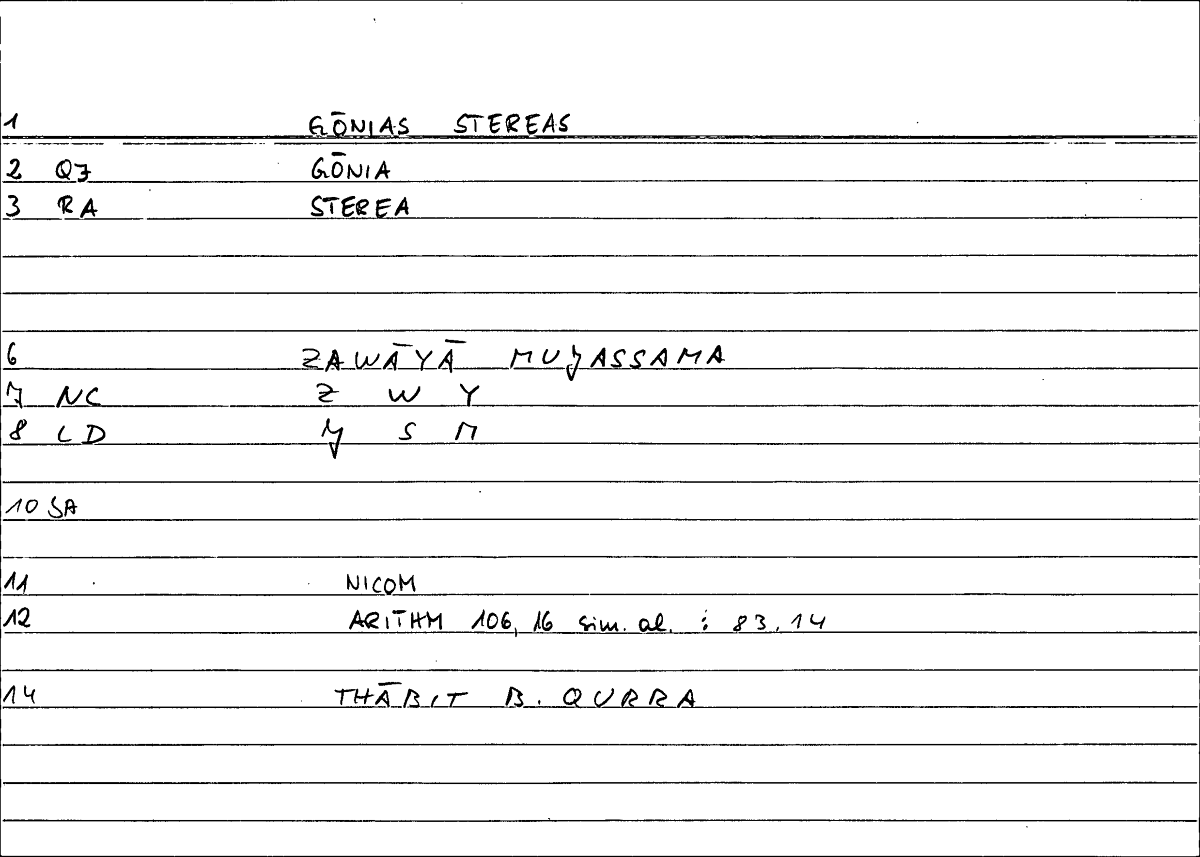 1 GŌNIAS STEREAS
2 QJ GŌNIA
3 RA STEREA
6 ZAWĀYĀ MUJASSAMA
7 NC Z W Y
8 LD J S M
10 SA
11 NICOM
12 ARITHM 106, 16 sim. al. : 83.14
14 THĀBIT B. QURRA